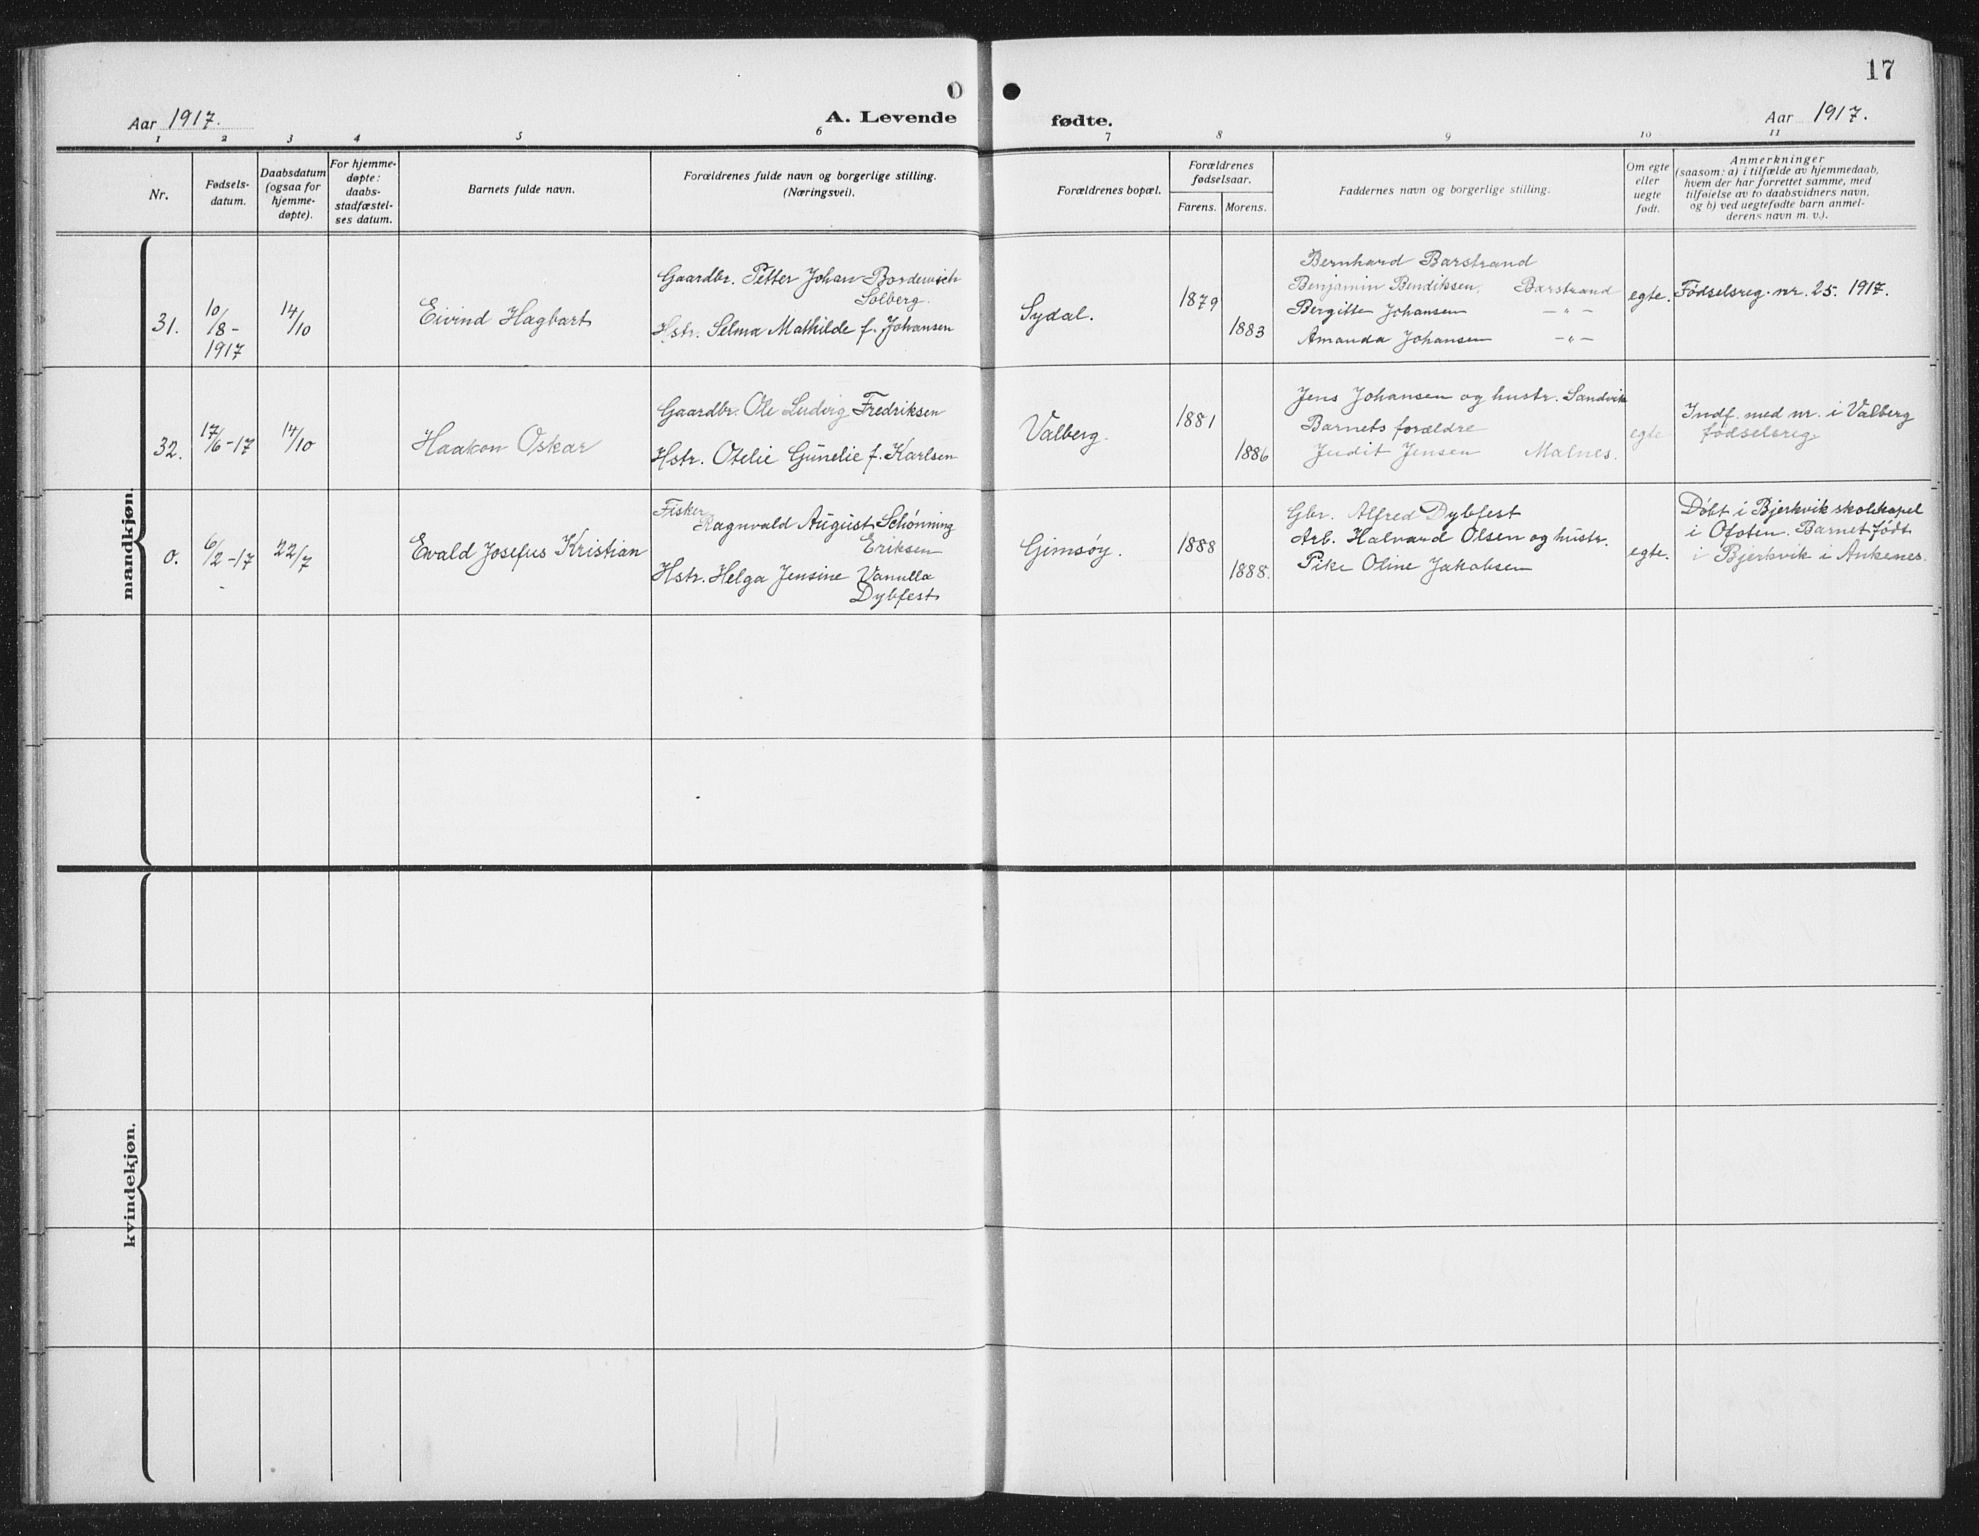 17
Aar 1917.
A. Levende fødte.
Aar 1917.
1 2 3 4 5 6 7 8 9 10 11
Nr.
Fødsels-
datum.
Daabsdatum
(ogsaa for
hjemme-
døpte).
For hjemme-
døpte:
daabs-
stadfæstel-
ses datum.
Barnets fulde navn.
Forældrenes fulde navn og borgerlige stilling.
(Næringsvei).
Forældrenes bopæl.
Forældrenes
fødselsaar.
Farens. Morens.
Faddernes navn og borgerlige stilling.
Om egte
eller
uegte
født.
Anmerkninger
(saasom: a) i tilfælde av hjemmedaab,
hvem der har forrettet samme, med
tilføielse av to daabsvidners navn,
og b) ved uegtefødte barn anmel-
derens navn m. v.).
mandkjøn.
31.
10/8-
1917
14/10
Eivind Hagbart
Gaardbr. Petter Johan Bordewich
Solberg.
Hstr. Selma Mathilde f. Johansen
Sydal.
1879
1883
Bernhard Barstrand
Benjamin Bendiksen. Barstrand
Bergitte Johansen -"-
Amanda Johansen -"-
egte.
Fødselsreg. nr. 25. 1917.
32.
17/6-17
14/10
Haakon Oskar
Gaardbr. Ole Ludvig Fredriksen
Hstr. Otelie Gunelie f. Karlsen
Valberg.
1881
1886
Jens Johansen og hustr. Sandvik
Barnets forældre
Judit Jensen Malnes.
egte
Indf. med nr. i Valberg
fødselsreg
0.
6/2-17
22/7
Ewald Josefus Kristian
Fisker
Ragnvald August Schønning
Eriksen
Hstr. Helga Jensine Vanulla
Dybfest
Gimsøy.
1888
1888.
Gbr. Alfred Dybfest
Arb. Halvard Olsen og hustr.
Pike Oline Jakobsen
egte.
Døbt i Bjerkvik skolekapel
i Ofoten. Barnet født
i Bjerkvik i Ankenes.
kvindekjøn.